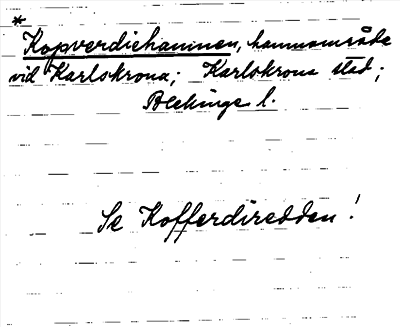 *
Kopverdiehamnen, hamnområde
vid Karlskrona; Karlskrona stad;
Blekinge l.
Se Kofferdiredden!